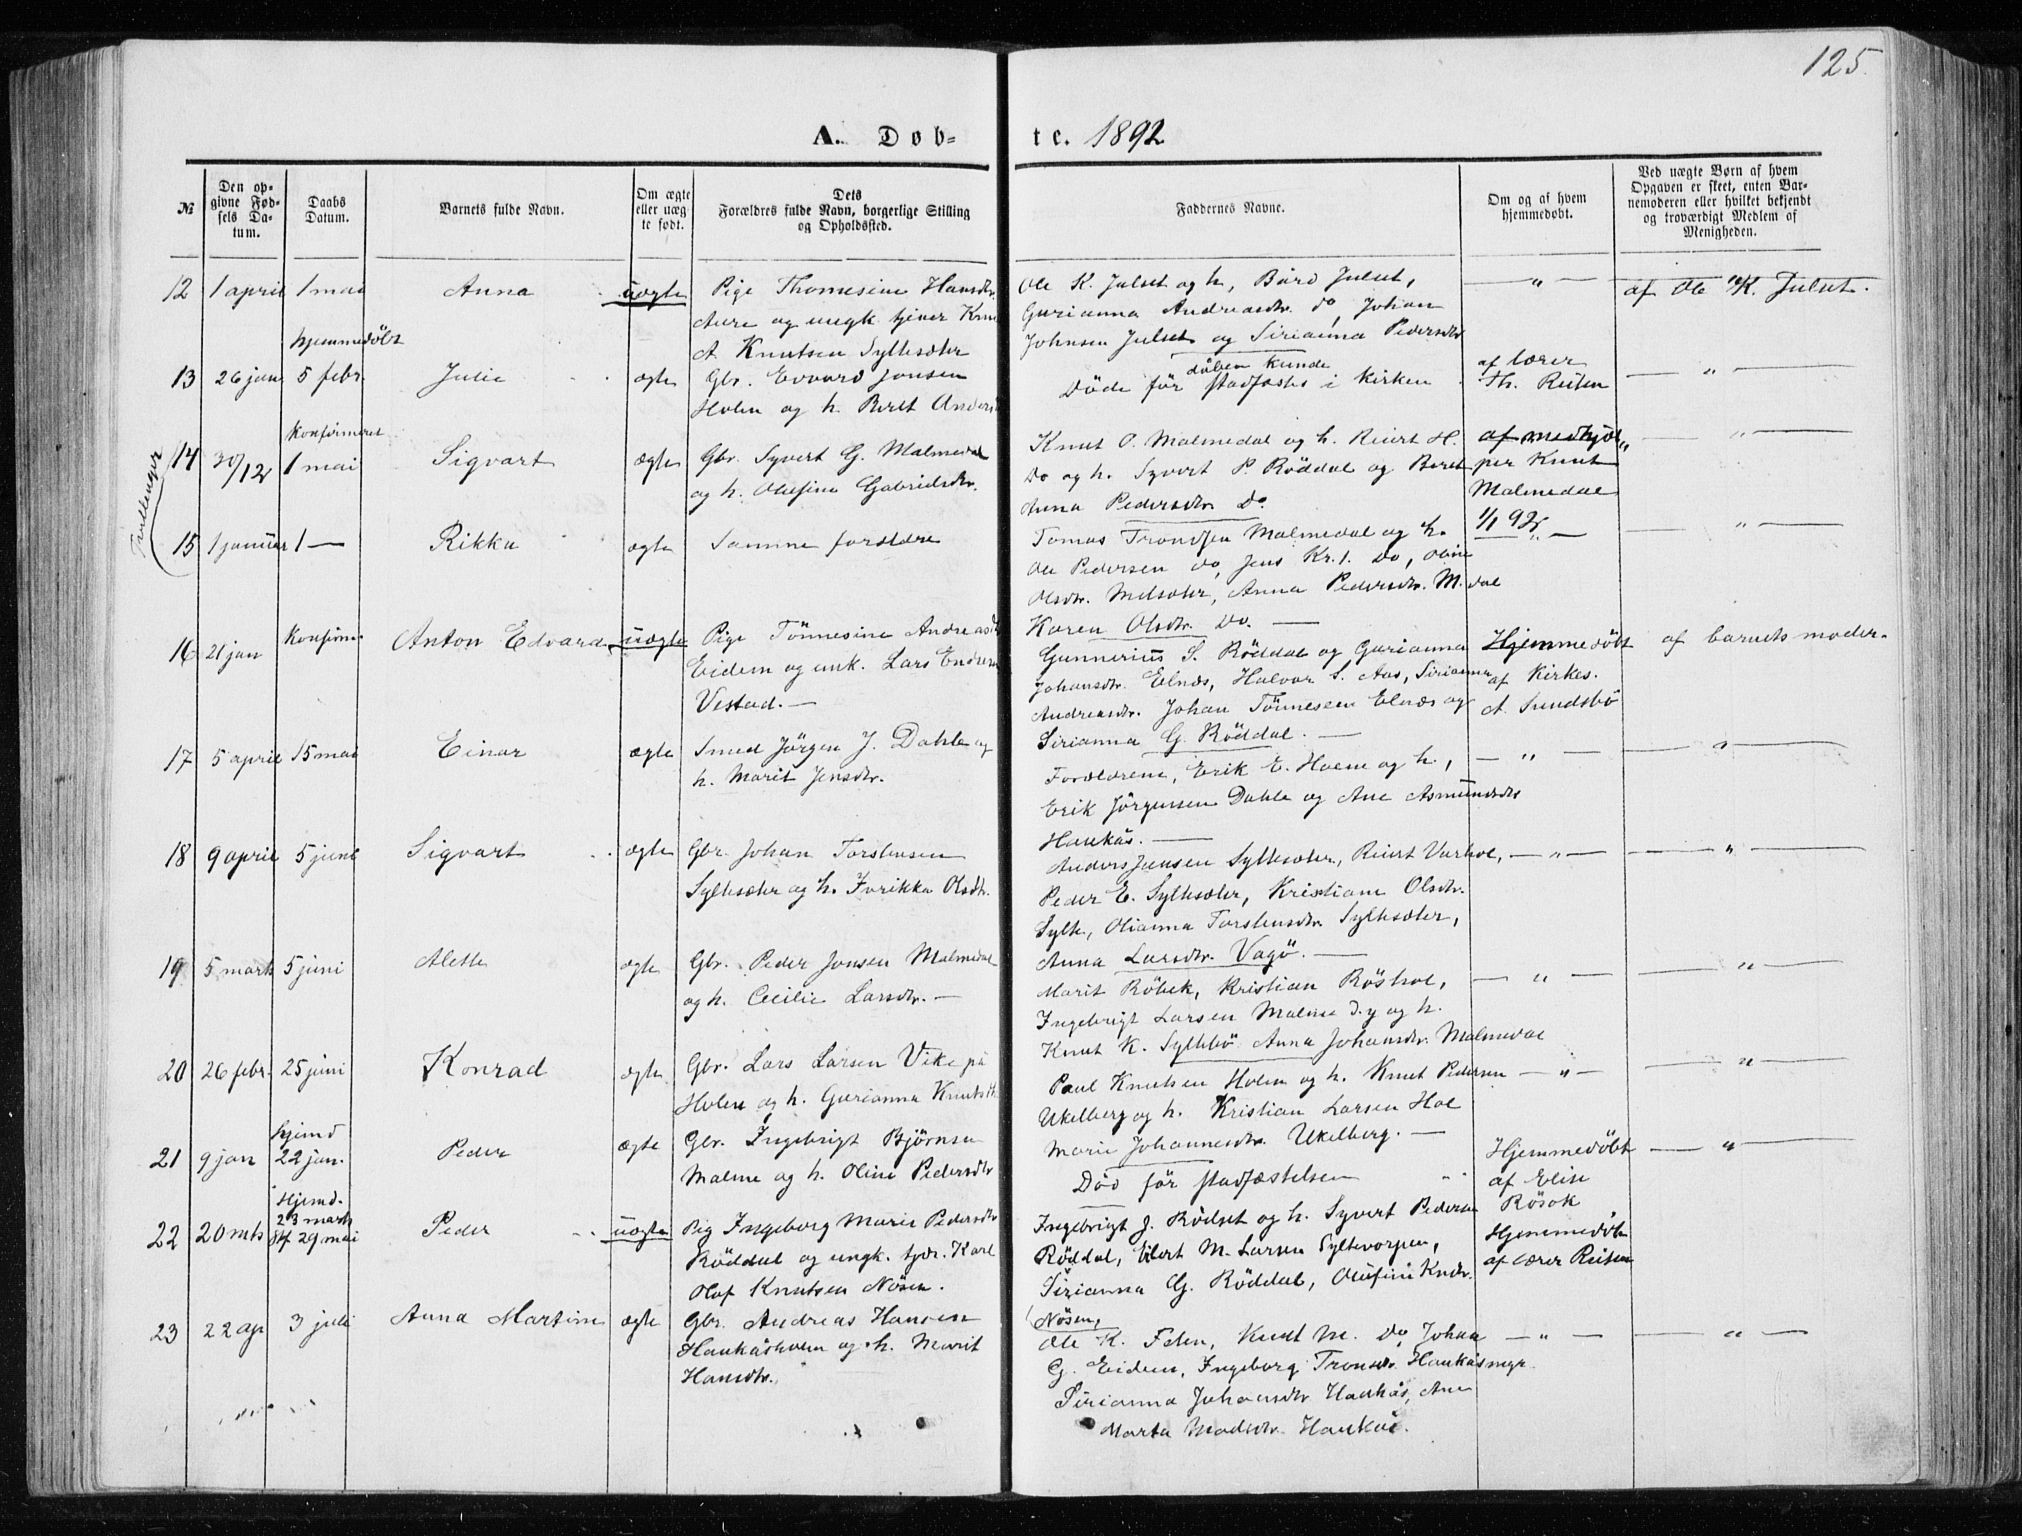 125.
A. Døb-
te. 1892
№
Den op-
givne Fød-
sels Da-
tum.
Daabs
Datum.
Barnets fulde Navn.
Om ægte
eller uæg-
te født.
Dets
Forældres fulde Navn, borgerlige Stilling
og Opholdssted.
Faddernes Navne.
Om og af hvem
hjemmedøbt.
Ved uægte Børn af hvem
Opgaven er skeet, enten Bar-
nemoderen eller hvilket bekjendt
og troværdigt Medlem af
Menigheden.
12 1 april 1 mai Anna uægte
Pige Thomesine Hansdtr.
Aure og ungk. tjener Knut
A Knutsen Syltesæter
Ole K. Julset og h, Bård Julset,
Gurianna Andreasdtr. do, Johan
Johnsen Julset og Sirianna Pedersdtr
— " —
af Ole K. Julset.
hjemmedöbt
13 26 jan 5 febr. Julie ægte
Gbr. Edvard Jonsen
Holen og h. Beret Anders
dåben kunde
Döde för stadfæstes i kirken
af lærer
Th. Reiten
— " —
Tvillinger
Konfirmeret
14 30/12 1 mai Sigvart ægte
Gbr. Syvert G. Malmedal
og h. Olufine Gabrielsdtr.
Knut P. Malmedal og h. Reiert H.
Do og h. Syvert P. Röddal og Beret
Anna Pedersdtr. Do.
af medhjæl
per Knut
Malmedal
1/1 92.
— " —
15 1 januar 1 — Rikka ægte
Samme forældre
Tomas Trondsen Malmedal og h.
Ole Pedersen do, Jens Kr. I. Do, Oline
Olsdtr. Melsæter, Anna Pedersdtr. M.dal
Karen Olsdtr. Do. —
— " —
16 21 jan Konfirm. Anton Edvard uægte
Pige Tönnesine Andreasdtr
Eidem og unk. Lars Endresen
Vestad. —
Gunnerius S. Röddal og Gurianna
Johansdtr. Elnæs, Halvor S. Aas, Sirianna
Andreasdtr. Johan Tönnesen Elnæs og
Sirianna G. Röddal. —
Hjemmedöbt
af Kirkes.
A. Sundsbö
af barnets moder.
17 5 april 15 mai Einar ægte
Smed Jörgen J. Dahle og
h. Marit Jensdtr.
Forældrene, Erik E. Holene og h,
Erik Jörgensen Dahle og Ane Asmundsdtr
Haukås. —
— " —
— " —
18 9 april 5 juni Sigvart ægte
Gbr. Johan Torstensen
Syltesæter og h. Fredrikka Olsdtr.
Anders Jensen Syltesæter, Reiert Varhol,
Peder E. Syltesæter, Kristiane Olsdtr.
Sylte, Olianna Torstensdtr. Syltesæter,
Anna Larsdtr. Vagö. —
— " —
— " —
19 5 marts 5 juni Alette ægte
Gbr. Peder Jonsen Malmedal
og h. Cecilie Larsdtr. —
Marit Röbek, Kristian Röshol,
Ingebrigt Larsen Malme d.y og h.
Knut K. Syltebö Anna Johansdtr. Malmedal
— " —
— " —
20 26 febr. 25 juni Konrad ægte
Gbr. Lars Larsen Vike på
Holen og h. Gurianna Knutsdtr.
Paul Knutsen Holen og h. Knut Pedersen
Ukelberg og h. Kristian Larsen Hol
Marie Johannesdtr. Ukelberg. —
— " —
— " —
hjemd
21 9 jan 22 jan. Peder ægte
Gbr. Ingebrigt Björnsen
Malme og h. Oline Pedersdtr
Död för stadfæstelsen
Hjemmedöbt
af Elise
Rösok
— " —
Hjemd.
23 marts
22 20 mts st 29 mai Peder uægte
Pig Ingeborg Marie Pedersdtr
Röddal og ungk. tjr. Karl
Olof Knutsen Nösen.
Ingebrigt J. Rödset og h. Syvert Pedersen
Röddal, Eilert M. Larsen Syltevorpen,
Sirianna G. Röddal, Olufine Knudtr.
Nösen,
Hjemmedöbt
af lærer Reiten
23 22 ap 3 juli Anna Martine ægte
Gbr. Andreas Hansen
Haukåsholen og h. Merit
Hansdtr.
Ole K. Eiden, Knut M. Do, Johan
G. Eidem, Ingeborg Tronsdtr. Haukåsmyr
Sirianna Johansdtr Haukås, Ane
Marta Madsdtr. Haukås.
— " —
— " —